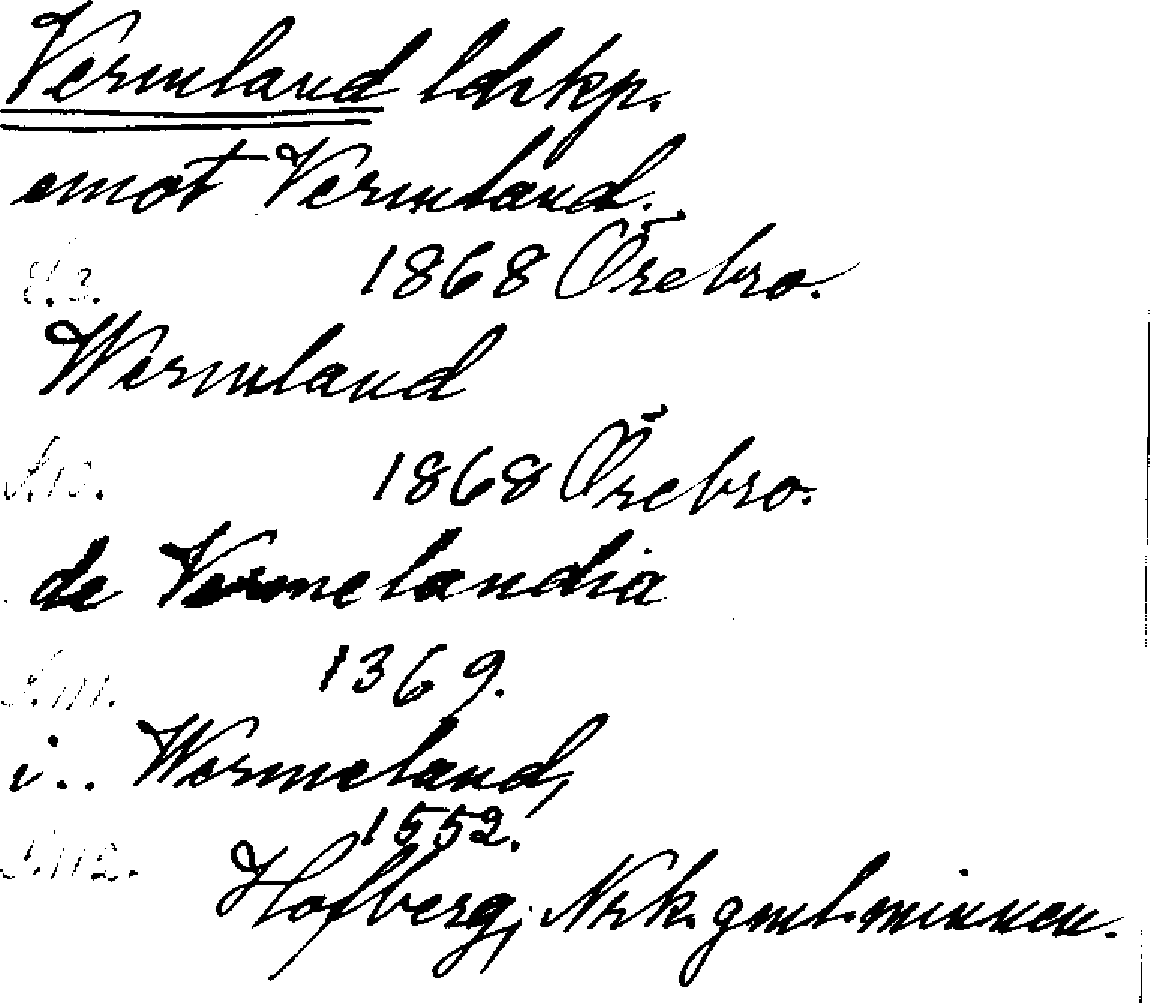 Vermland ldskp.
emot Vermland.
S. 3. 1868 Örebro.
Wermland
S. 10. 1868 Örebro.
de Vermelandia
S. 111. 1369.
i.. Wermeland,
1552.
S. 112.
Hofberg, Nrk. gml. minnen.